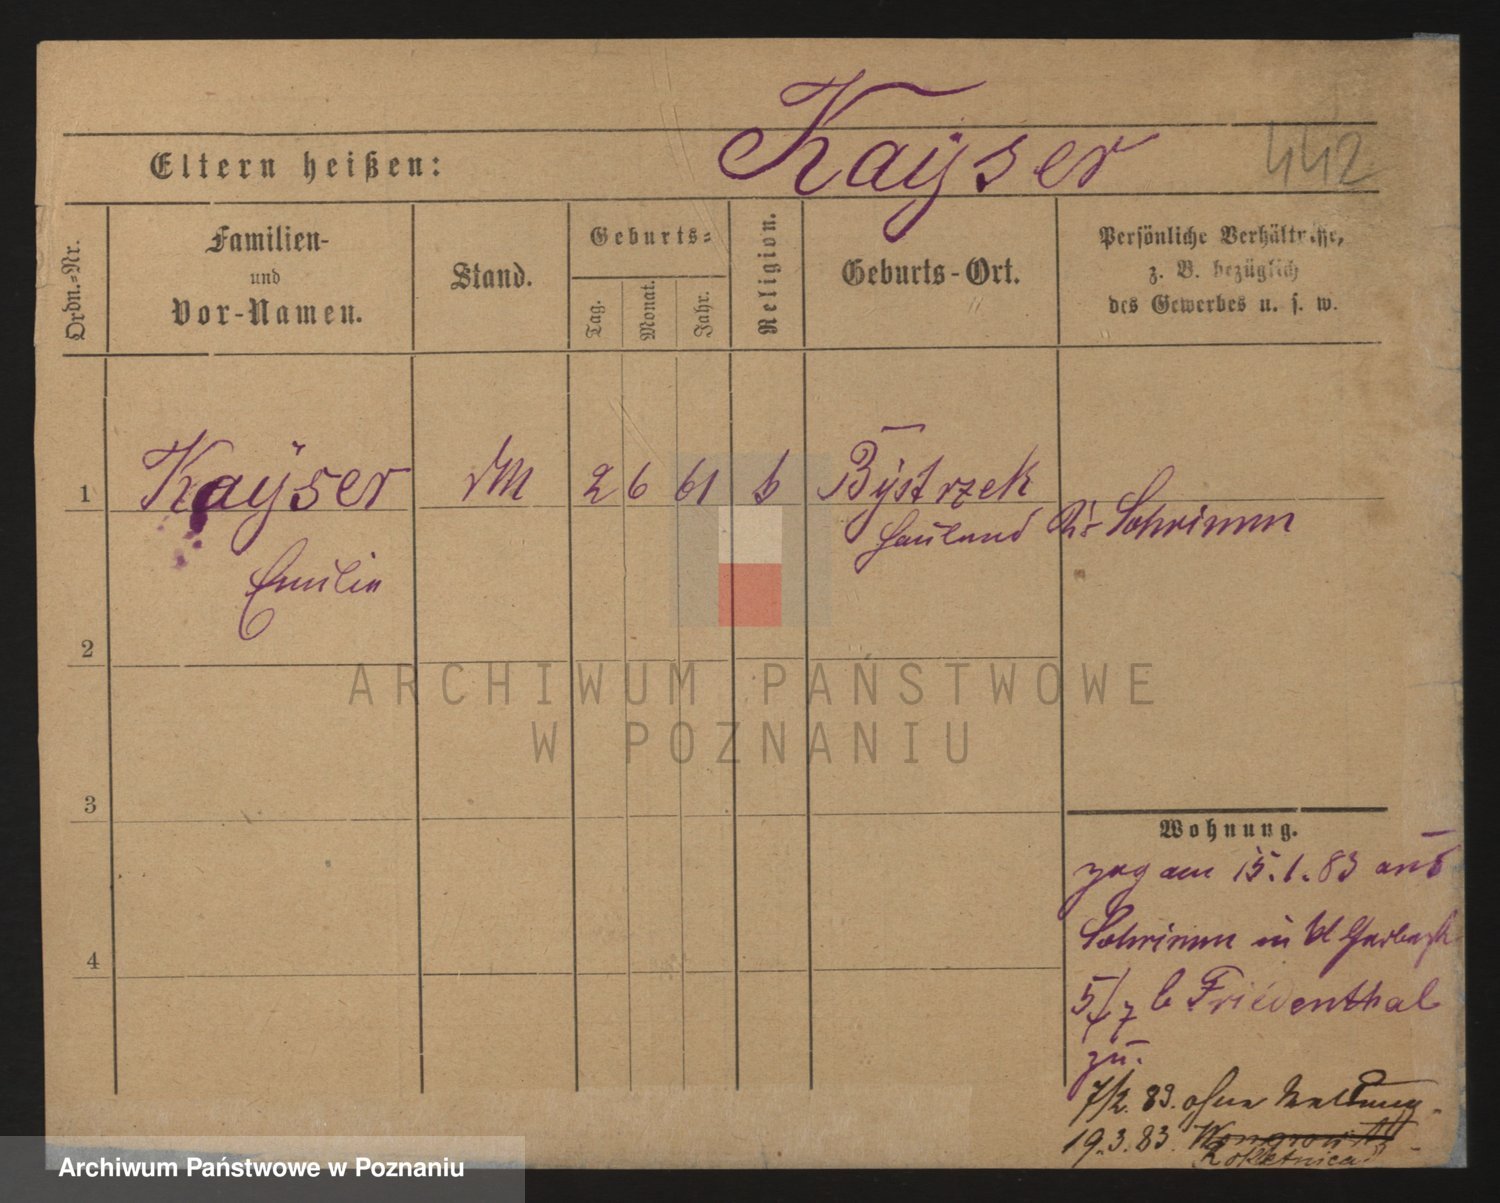 Kaÿser
442
Eltern heißen:
Ordn.-Nr.
Familien-
und
Vor-Namen.
Stand.
Geburts-
Tag.
Monat.
Jahr.
Religion.
Geburts-Ort.
Persönliche Verhältnisse,
z. B. bezüglich
des Gewerbes u. s. w.
1
Kaÿser
Emilie
2 6 61
Bystrzek
Hauland Kr Schrimm
2
ARCHIWUM PAŃSTWOWE
W POZNANIU
3
4
Wohnung.
zog am 15.1.83 aus
Schrimm in
5/7 b Friedenthal
zu.
7/2. 83. ohne Meldung.
19.3.83. Wongrowitz
Rokietnica
Archiwum Państwowe w Poznaniu